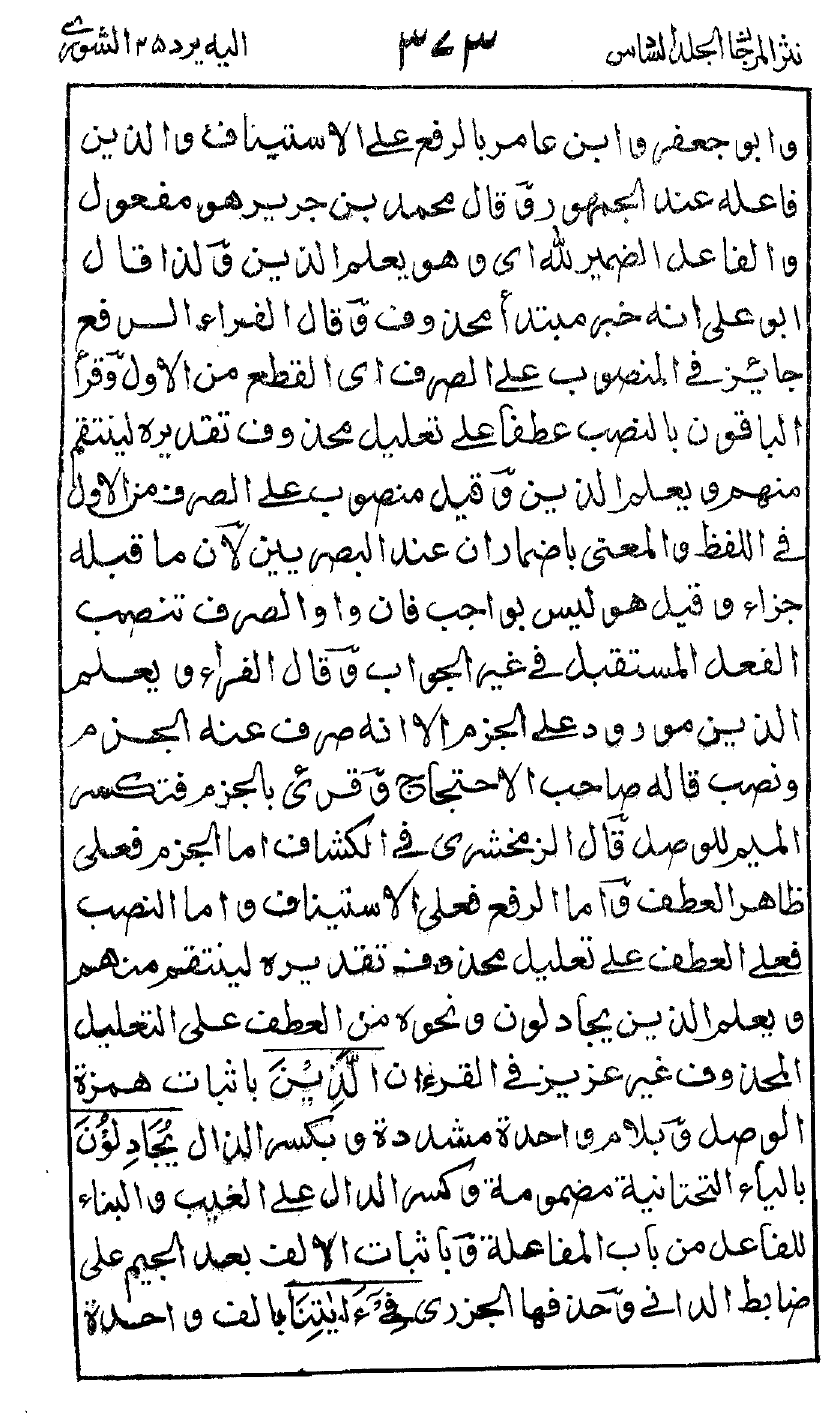 نثر المرجان الجلد السادس ٣٧٣ اليه يرد ٢٥ الشورى
وابو جعفر وابن عامر بالرفع على الاستيناف والذين
فاعله عند الجمهور وقال محمد بن جرير هو مفعول
والفاعل الضمير لله اى وهو يعلم الذين ولذا قال
ابو على انه خبر مبتدأ محذوف وقال الفراء الرفع
جائز فى المنصوب على الصرف اى القطع من الاول وقرأ
الباقون بالنصب عطفا على تعليل محذوف تقديره لينتقم
منهم ويعلم الذين وقيل منصوب على الصرف من الاول
فى اللفظ والمعنى باضمار ان عند البصريين لان ما قبله
جزاء وقيل هو ليس بواجب فان واو الصرف تنصب
الفعل المستقبل فى غير الجواب وقال الفراء ويعلم
الذين مورود على الجزم الا انه صرف عنه الجزم
ونصب قاله صاحب الاحتجاج وقرئ بالجزم فتكسر
الميم للوصل قال الزمخشرى فى الكشاف اما الجزم فعلى
ظاهر العطف واما الرفع فعلى الاستيناف واما النصب
فعلى العطف على تعليل محذوف تقديره لينتقم منهم
ويعلم الذين يجادلون ونحوه من العطف على التعليل
المحذوف غير عزيز فى القرءان الَّذِيْنَ باثبات همزة
الوصل وبلام واحدة مشددة وبكسر الذال يُجَادِلُوْنَ
بالياء التحتانية مضمومة وكسر الدال على الغيب والبناء
للفاعل من باب المفاعلة وباثبات الالف بعد الجيم على
ضابط الدانى وحذفها الجزرى فِىْٓ ءَايٰتِنَا بالف واحدة